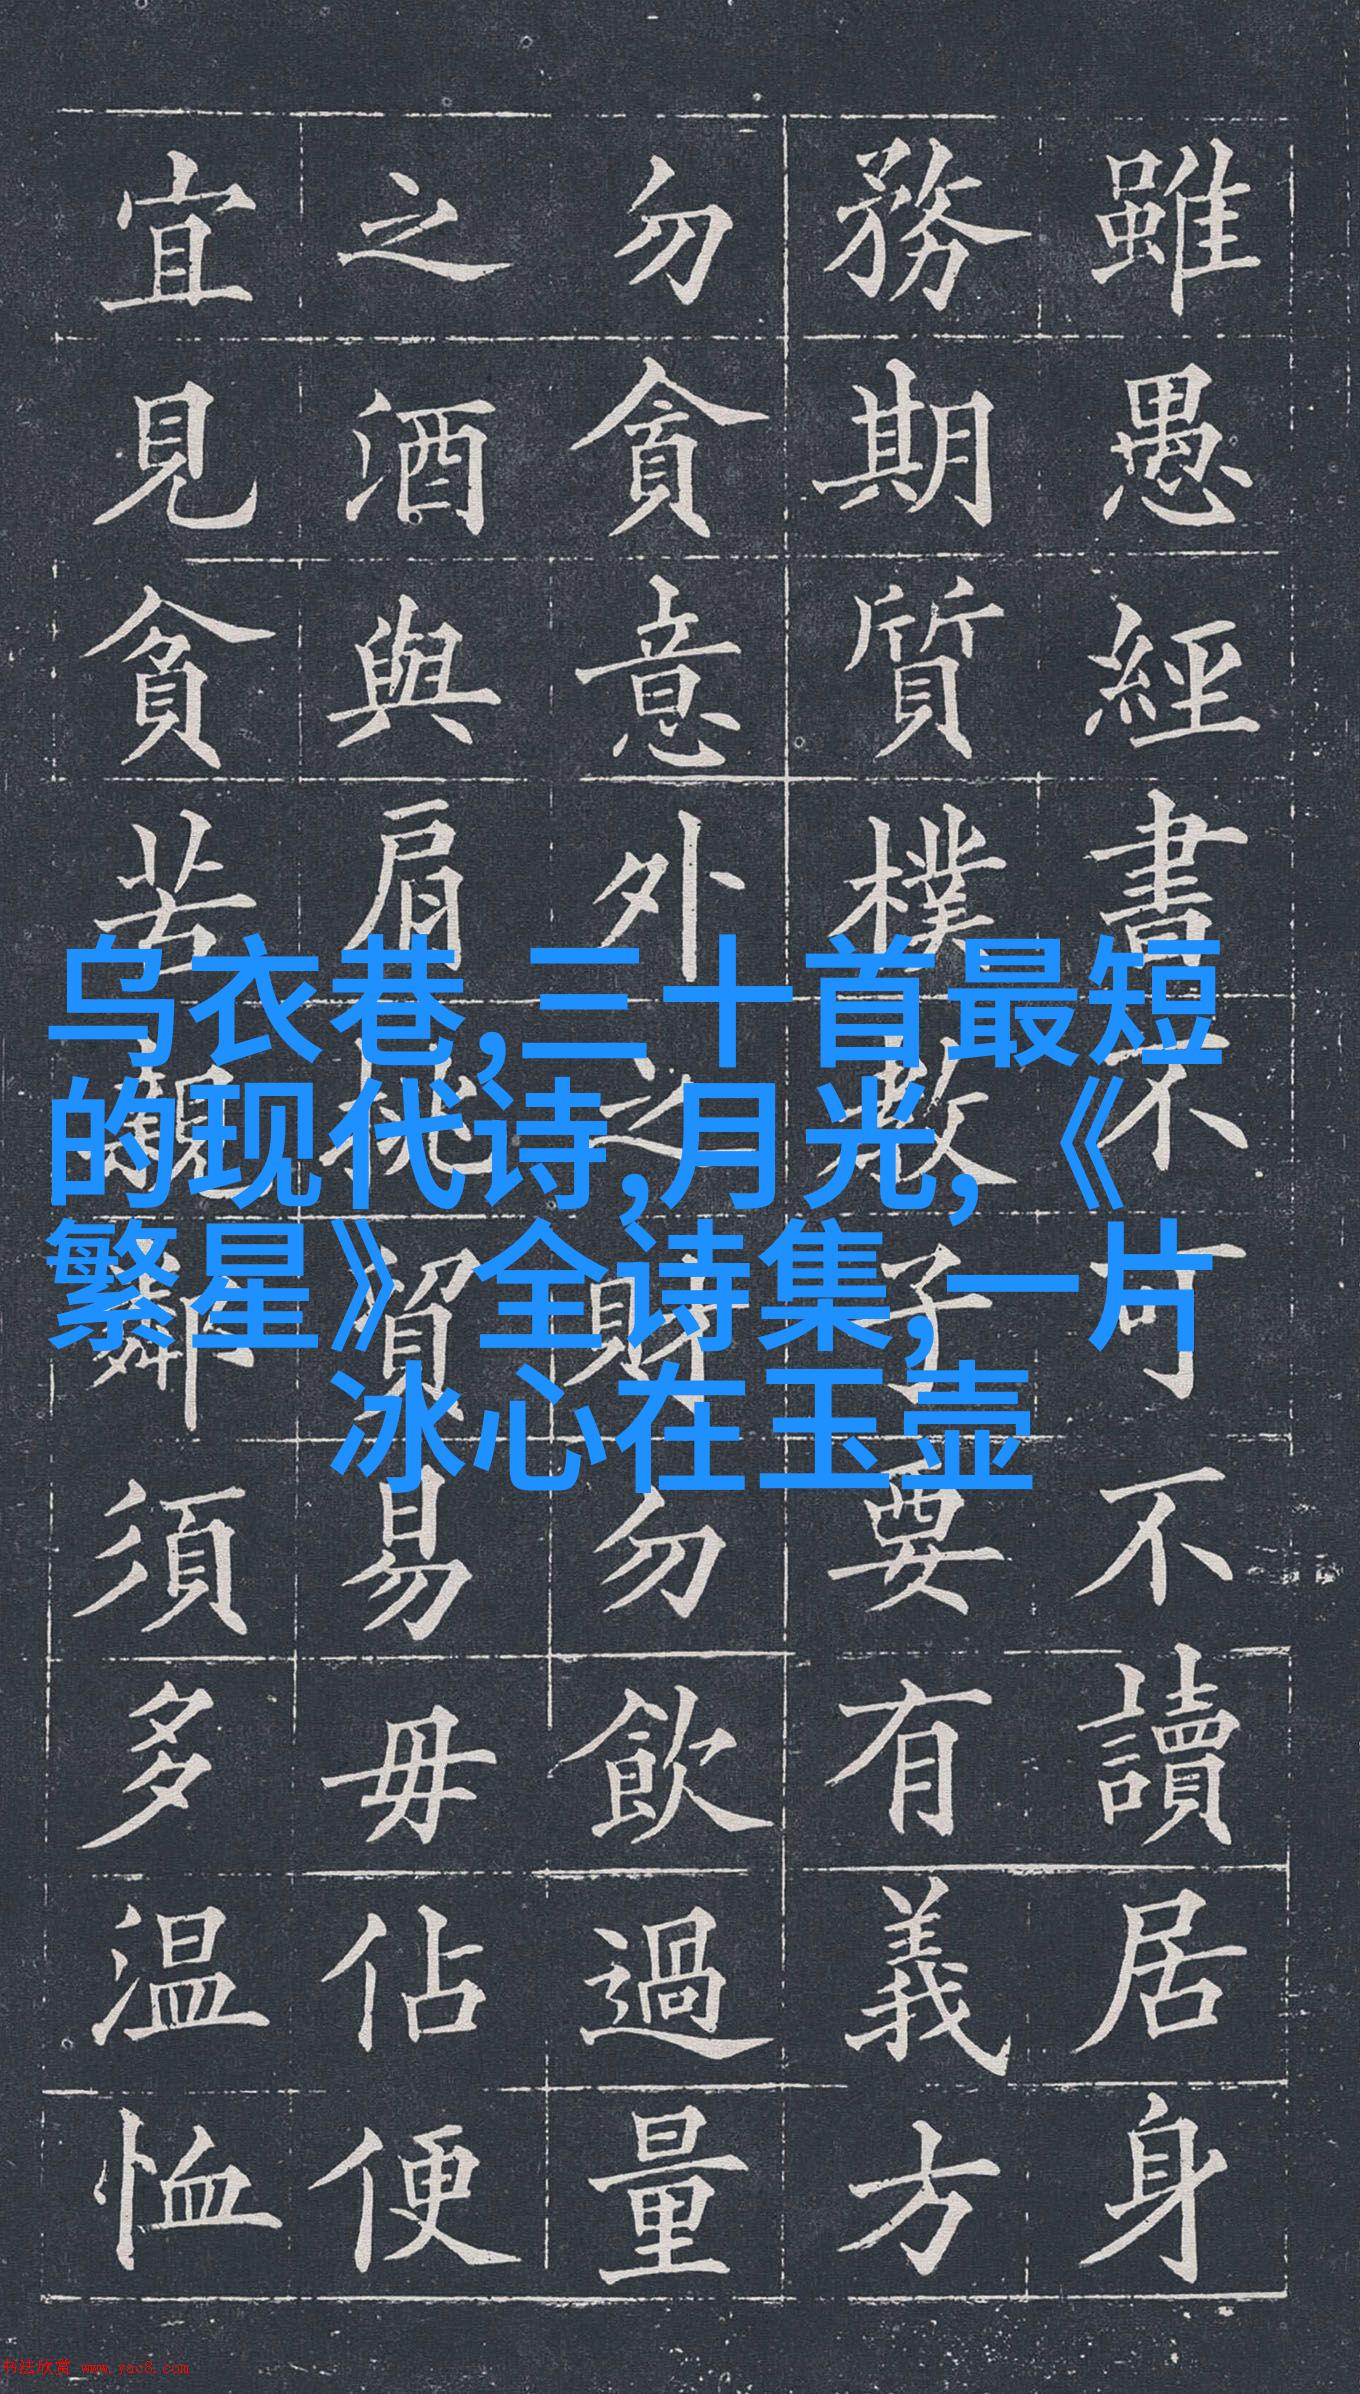 雖愚經書不可不讀居身
務期質樸教子要有義方
勿貪意外之財勿飲過量
之酒與肩挑貿易毋佔便
宜見貧苦親鄰須多温恤
乌衣巷,三十首最短
的现代诗,月光,《
繁星》全诗集,一片
冰心在玉壶
书法欣赏 www.yac8.com